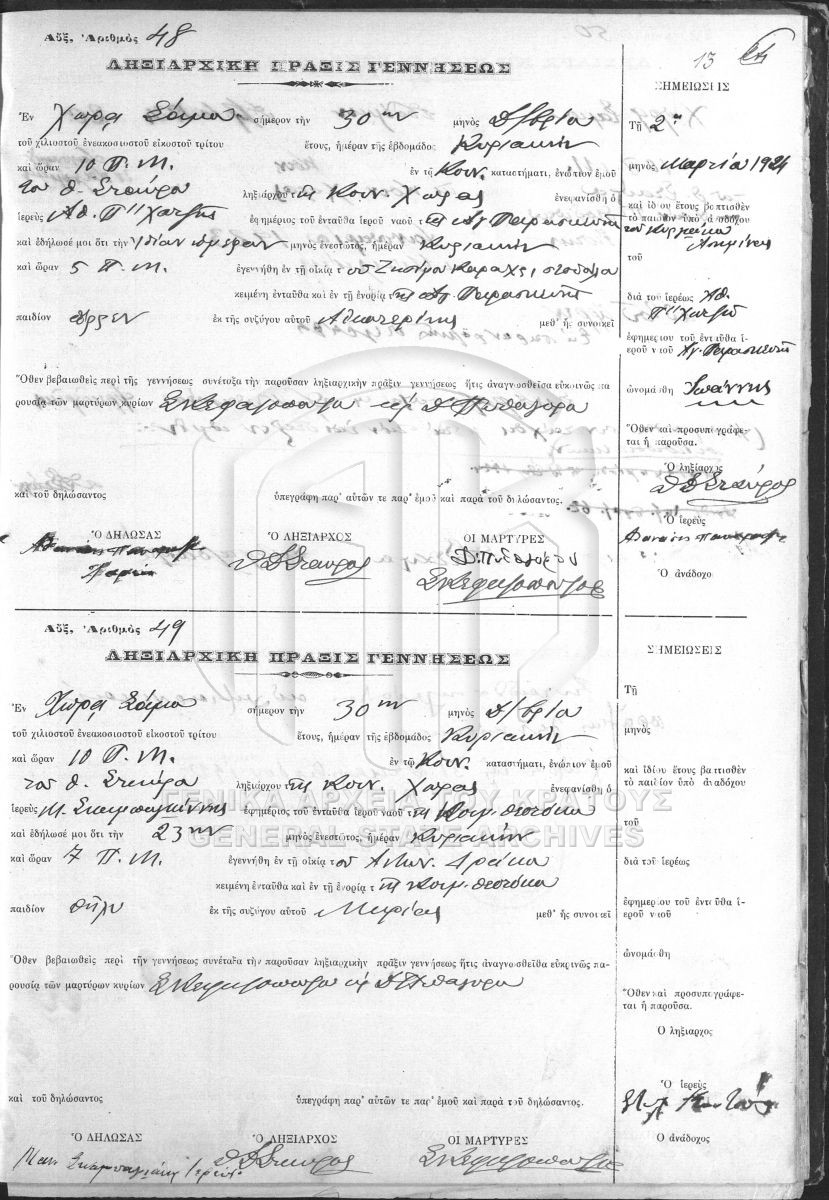 Αὔξ. Ἀριθμὸς 48
13
ΛΗΞΙΑΡΧΙΚΗ ΠΡΑΞΙΣ ΓΕΝΝΗΣΕΩΣ
Ἐν Χώρᾳ Σάμου σήμερον τὴν 30ην μηνὸς
τοῦ χιλιοστοῦ ἐνεακοσιοστοῦ εἰκοστοῦ τρίτου ἔτους, ἡμέραν τῆς ἑβδομάδος Κυριακὴν
καὶ ὥραν 10 Π. Μ. ἐν τῷ Κοιν. καταστήματι, ἐνώπιον ἐμοῦ
τοῦ Δ. Σταύρου ληξιάρχου τῆς Κοιν. Χώρας ἐνεφανίσθη ὁ
ἱερεὺς Ἀθ. ἐφημέριος τοῦ ἐνταῦθα ἱεροῦ ναοῦ τῆς Ἁγ. Παρασκευῆς
καὶ ἐδήλωσέ μοι ὅτι τὴν ἰδίαν ἡμέραν μηνὸς ἐνεστῶτος, ἡμέραν Κυριακὴν
καὶ ὥραν 5 Π. Μ. ἐγεννήθη ἐν τῇ οἰκίᾳ τοῦ
κειμένῃ ἐνταῦθα καὶ ἐν τῇ ἐνορίᾳ τῆς Ἁγ. Παρασκευῆς
παιδίον ἄρρεν ἐκ τῆς συζύγου αὐτοῦ Αἰκατερίνης μεθ' ἧς συνοικεῖ
Ὅθεν βεβαιωθεὶς περὶ τῆς γεννήσεως συνέταξα τὴν παροῦσαν ληξιαρχικὴν πρᾶξιν γεννήσεως ἥτις ἀναγνωσθεῖσα εὐκρινῶς πα-
ρουσίᾳ τῶν μαρτύρων κυρίων
καὶ τοῦ δηλώσαντος ὑπεγράφη παρ' αὐτῶν τε παρ' ἐμοῦ καὶ παρὰ τοῦ δηλώσαντος.
Ὁ ΔΗΛΩΣΑΣ Ὁ ΛΗΞΙΑΡΧΟΣ ΟΙ ΜΑΡΤΥΡΕΣ
ΣΗΜΕΙΩΣΕΙΣ
Τῇ 2
μηνὸς Μαρτίου 1924
καὶ ἰδίου ἔτους βαπτισθὲν
τὸ παιδίον ὑπὸ ἀναδόχου
τοῦ
διὰ τοῦ ἱερέως Ἀθ.
ἐφημερίου τοῦ ἐνταῦθα
ἱεροῦ ναοῦ Ἁγ. Παρασκευῆς
ὠνομάσθη Ἰωάννης
Ὅθεν καὶ προσυπογράφε-
ται ἡ παροῦσα.
Ὁ ληξίαρχος
Ὁ ἱερεὺς
Ὁ ἀνάδοχο
Αὔξ. Ἀριθμὸς 49
ΛΗΞΙΑΡΧΙΚΗ ΠΡΑΞΙΣ ΓΕΝΝΗΣΕΩΣ
Ἐν Χώρᾳ Σάμου σήμερον τὴν 30ην μηνὸς
τοῦ χιλιοστοῦ ἐνεακοσιοστοῦ εἰκοστοῦ τρίτου ἔτους, ἡμέραν τῆς ἑβδομάδος Κυριακὴν
καὶ ὥραν 10 Π. Μ. ἐν τῷ Κοιν. καταστήματι, ἐνώπιον ἐμοῦ
τοῦ Δ. Σταύρου ληξιάρχου τῆς Κοιν. Χώρας ἐνεφανίσθη ὁ
ἱερεὺς Μ. ἐφημέριος τοῦ ἐνταῦθα ἱεροῦ ναοῦ τῆς Κοιμ. Θεοτόκου
καὶ ἐδήλωσέ μοι ὅτι τὴν 23ην μηνὸς ἐνεστῶτος, ἡμέραν Κυριακὴν
καὶ ὥραν 7 Π. Μ. ἐγεννήθη ἐν τῇ οἰκίᾳ τοῦ Ἀντων. Δράκου
κειμένῃ ἐνταῦθα καὶ ἐν τῇ ἐνορίᾳ τῆς Κοιμ. Θεοτόκου
παιδίον θῆλυ ἐκ τῆς συζύγου αὐτοῦ Μαρίας μεθ' ἧς συνοικεῖ
Ὅθεν βεβαιωθεὶς περὶ τῆς γεννήσεως συνέταξα τὴν παροῦσαν ληξιαρχικὴν πρᾶξιν γεννήσεως ἥτις ἀναγνωσθεῖσα εὐκρινῶς πα-
ρουσίᾳ τῶν μαρτύρων κυρίων
καὶ τοῦ δηλώσαντος ὑπεγράφη παρ' αὐτῶν τε παρ' ἐμοῦ καὶ παρὰ τοῦ δηλώσαντος.
Ὁ ΔΗΛΩΣΑΣ Ὁ ΛΗΞΙΑΡΧΟΣ ΟΙ ΜΑΡΤΥΡΕΣ
ΣΗΜΕΙΩΣΕΙΣ
Τῇ
μηνὸς
καὶ ἰδίου ἔτους βαπτισθὲν
τὸ παιδίον ὑπὸ ἀναδόχου
τοῦ
διὰ τοῦ ἱερέως
ἐφημερίου τοῦ ἐνταῦθα ἱ-
εροῦ ναοῦ
ὠνομάσθη
Ὅθεν καὶ προσυπογράφε-
ται ἡ παροῦσα.
Ὁ ληξίαρχος
Ὁ ἱερεὺς
Ὁ ἀνάδοχος
ΓΕΝΙΚΑ ΑΡΧΕΙΑ ΤΟΥ ΚΡΑΤΟΥΣ
GENERAL STATE ARCHIVES